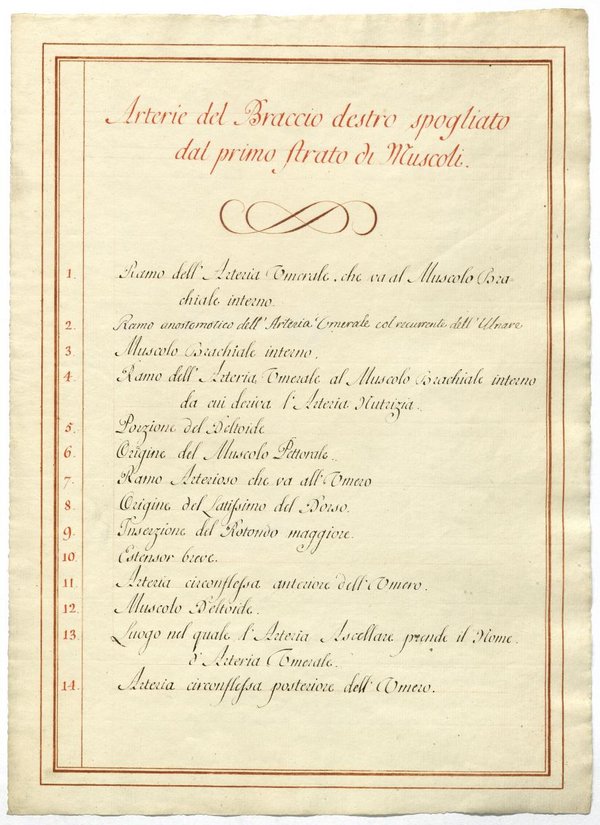 Arterie del Braccio destro spogliato
dal primo strato di Muscoli.
1. Ramo dell' Arteria Umerale, che va al Muscolo Bra-
chiale interno.
2. Ramo anostomotico dell' Arteria Umerale col recurrente dell' Ulnare
3. Muscolo Brachiale interno.
4. Ramo dell' Arteria Umerale al Muscolo Brachiale interno
da cui deriva l' Arteria Nutrizia.
5. Porzione del Deltoide
6. Origine del Muscolo Pettorale.
7. Ramo Arterioso che va all' Umero
8. Origine del Latissimo del Dorso.
9. Inserzione del Rotondo maggiore.
10. Estensor breve.
11. Arteria circonflessa anteriore dell' Umero.
12. Muscolo Deltoide.
13. Luogo nel quale l' Arteria Ascellare prende il Nome
d' Arteria Umerale.
14. Arteria circonflessa posteriore dell' Umero.